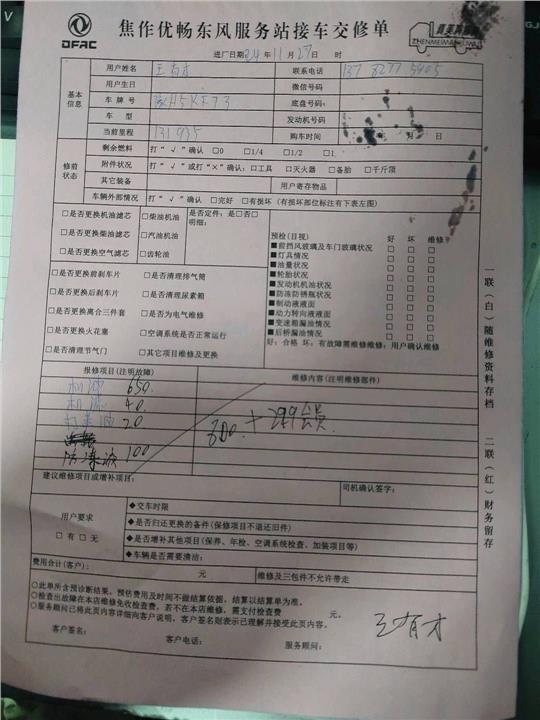 DFAC
焦作优畅东风服务站接车交修单
ZHENMEIMAKUWAN
进厂日期24年11月27日 时
基本信息
用户姓名 王有才 联系电话
用户生日 微信号码
车牌号 豫H5KF73 底盘号码:
车型 发动机号码
当前里程 131935 购车时间 年 月 日
修前状态
剩余燃料 打“√”确认 □0 □1/4 □1/2 □1
附件状况 打“√”或打“×”确认:□工具 □灭火器 □备胎 □千斤顶
其它装备 用户寄存物品
车辆外部情况 打“√”确认 □完好 □有损坏(有损坏部位标注有下表左图)
□是否更换机油滤芯 □柴油机油 是否定件:是□否□
明细:
□是否更换柴油滤芯 □汽油机油
□是否更换空气滤芯 □齿轮油
□是否更换前刹车片 □是否清理排气筒
□是否更换后刹车片 □是否清理尿素箱
□是否更换离合三件套 □是否为电气维修
□是否更换火花塞 □空调系统是否正常运行
□是否清理节气门 □其它项目维修及更换
预检(目视) 好 坏 维修
■前挡风玻璃及车门玻璃状况 □ □ □
■灯具情况 □ □ □
■油量状况 □ □ □
■轮胎状况 □ □ □
■发动机机油状况 □ □ □
■防冻防锈瓶状况 □ □ □
■制动液液面 □ □ □
■动力转向液液面 □ □ □
■变速箱漏油情况 □ □ □
■后桥漏油情况 □ □ □
好:合格 坏:有故障需维修维修:用户确认维修
报修项目(注明故障) 维修内容(注明维修部件)
机油 650.
机滤 40.
20
防冻液 100
800.+299会员.
建议维修项目或增补项目: 司机确认签字:
用户要求
□有□无
◆交车时限
◆是否归还更换的备件(保修项目不退还旧件)
◆是否增补其他项目(保养、年检、空调系统检查、加装项目等)
◆车辆是否需要清洁:
费用合计(客户): 元 维修及三包件不允许带走
○此单所含预诊断结果,预估费用及时间不做结算依据,结算以结算单为准。
○检查出故障在本店维修免收检查费,若不在本店维修,需支付检查费 元。
○服务顾问已将此页内容详细向客户说明,客户签名则表示已理解并接受此页内容。
王有才
客户签名: 客户电话: 服务顾问:
一联(白)随维修资料存档 二联(红)财务留存